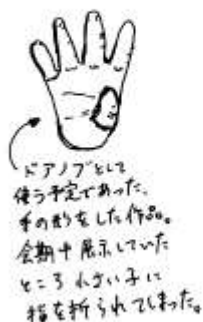 ドアノブとして
使う予定であった、
手の形をした作品。
会期中展示していた
ところ小さい子に
指を折られてしまった。